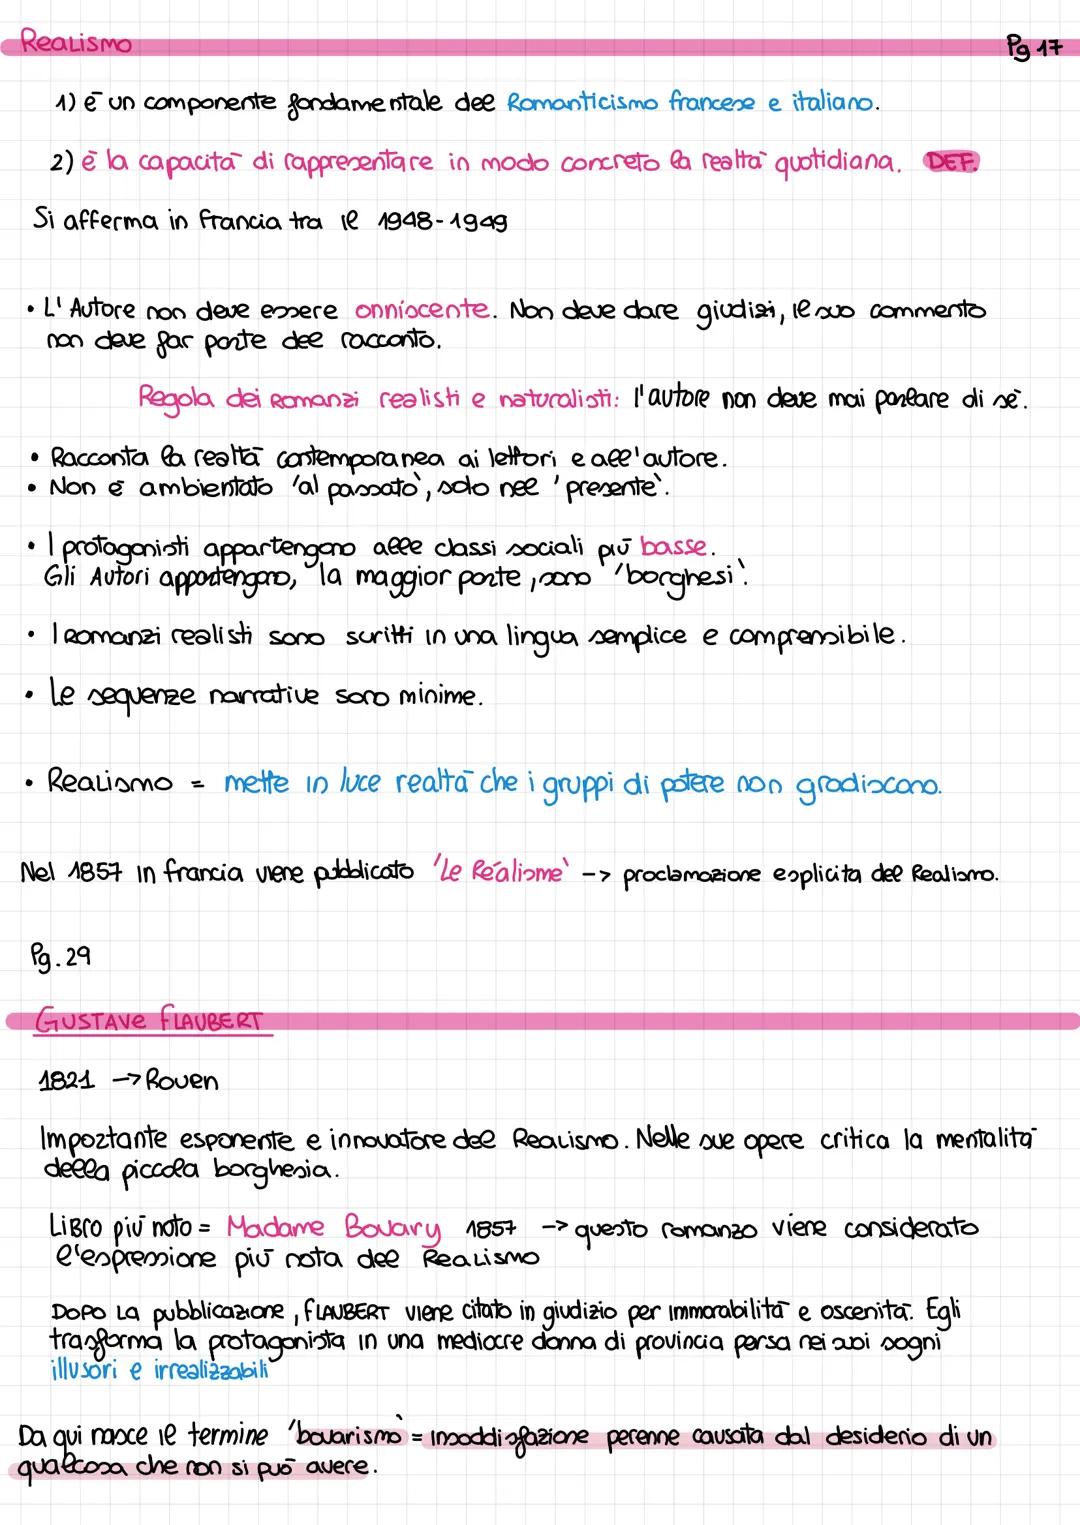 Realismo
Pg 17
1) è un componente fondamentale del Romanticismo francese e italiano.
2) è la capacità di rappresentare in modo concreto la realtà quotidiana. DEF.
Si afferma in Francia tra il 1948-1949
• L'Autore non deve essere onniscente. Non deve dare giudizi, il suo commento
non deve far parte del racconto.
Regola dei Romanzi realisti e naturalisti: l'autore non deve mai parlare di sè.
• Racconta la realtà contemporanea ai lettori e all'autore.
• Non è ambientato 'al passato', solo nel 'presente'.
• I protagonisti appartengono alle classi sociali più basse.
Gli Autori appartengono, la maggior parte, sono 'borghesi'.
• I Romanzi realisti sono scritti in una lingua semplice e comprensibile.
• Le sequenze narrative sono minime.
• Realismo = mette in luce realtà che i gruppi di potere non gradiscono.
Nel 1857 in francia viene pubblicato 'Le Réalisme' -> proclamazione esplicita del Realismo.
Pg. 29
GUSTAVE FLAUBERT
1821 -> Rouen
Importante esponente e innovatore del Realismo. Nelle sue opere critica la mentalità
della piccola borghesia.
Libro più noto = Madame Bovary 1857 -> questo romanzo viene considerato
l'espressione più nota del Realismo
Dopo la pubblicazione, FLAUBERT viene citato in giudizio per immorabilità e oscenità. Egli
trasforma la protagonista in una mediocre donna di provincia persa nei suoi sogni
illusori e irrealizzabili
Da qui nasce il termine 'bovarismo' = insoddisfazione perenne causata dal desiderio di un
qualcosa che non si può avere.